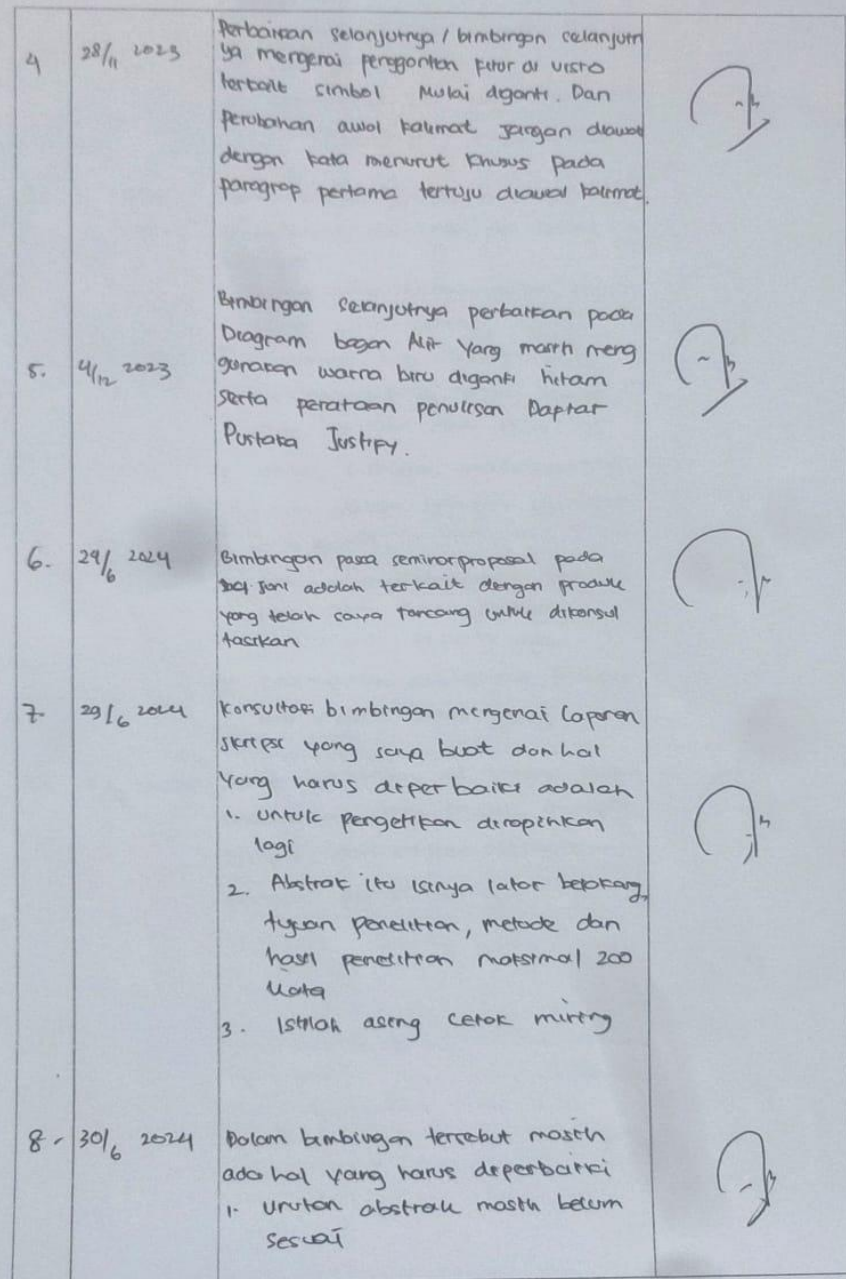 4
28/11 2023
Perbaikan selanjutnya / bimbingan selanjutn
ya mengenai penggantian fitur di visio
terkait simbol Mulai diganti. Dan
perubahan awal kalimat jangan diawali
dengan kata menurut khusus pada
paragrop pertama tertuju diawal kalimat.
5.
4/12 2023
Bimbingan selanjutnya perbaikan pada
Diagram bagan Alir yang masih meng
gunakan warna biru diganti hitam
serta perataan penulisan Daptar
Pustaka Justify.
6.
29/6 2024
Bimbingan pasca seminar proposal pada
adalah terkait dengan produk
yang telah saya rancang untuk dikonsul
tasikan
7.
29/6 2024
Konsultasi bimbingan mengenai laporan
skripsi yang saya buat dan hal
yang harus diperbaiki adalah
1. untuk pengetikan dirapihkan
lagi
2. Abstrak itu isinya latar belakang,
tujuan penelitian, metode dan
hasil penelitian maksimal 200
kata
3. Istilah aseng cetak miring
8.
30/6 2024
Dalam bimbingan tersebut masih
ada hal yang harus diperbaiki
1. Urutan abstrak masih belum
sesuai